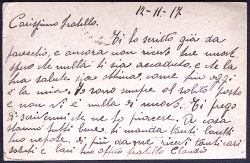 12-11-17
Carissimo fratello.
Ti ho scritto già da
parecchio, e ancora non ricevo tue nuove
spero che nulla ti sia accaduto, e che la
tua salute sia ottima, come più oggi
e la mia. Io sono sempre al solito posto
e non vi è nulla di nuovo. Ti prego
di scrivermi che ne ho piacere. A casa
stanno tutti bene, ti manda tanti
tuo nipote, di più da me ricevi tanti cari
saluti e baci tuo aff.mo fratello Claudio